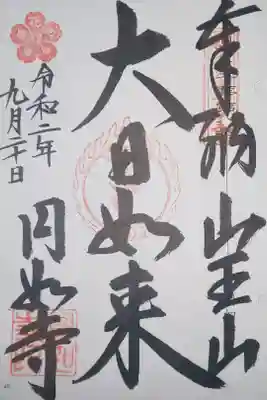 奉納 山王山
大日如来
円如寺
令和二年
九月二十日